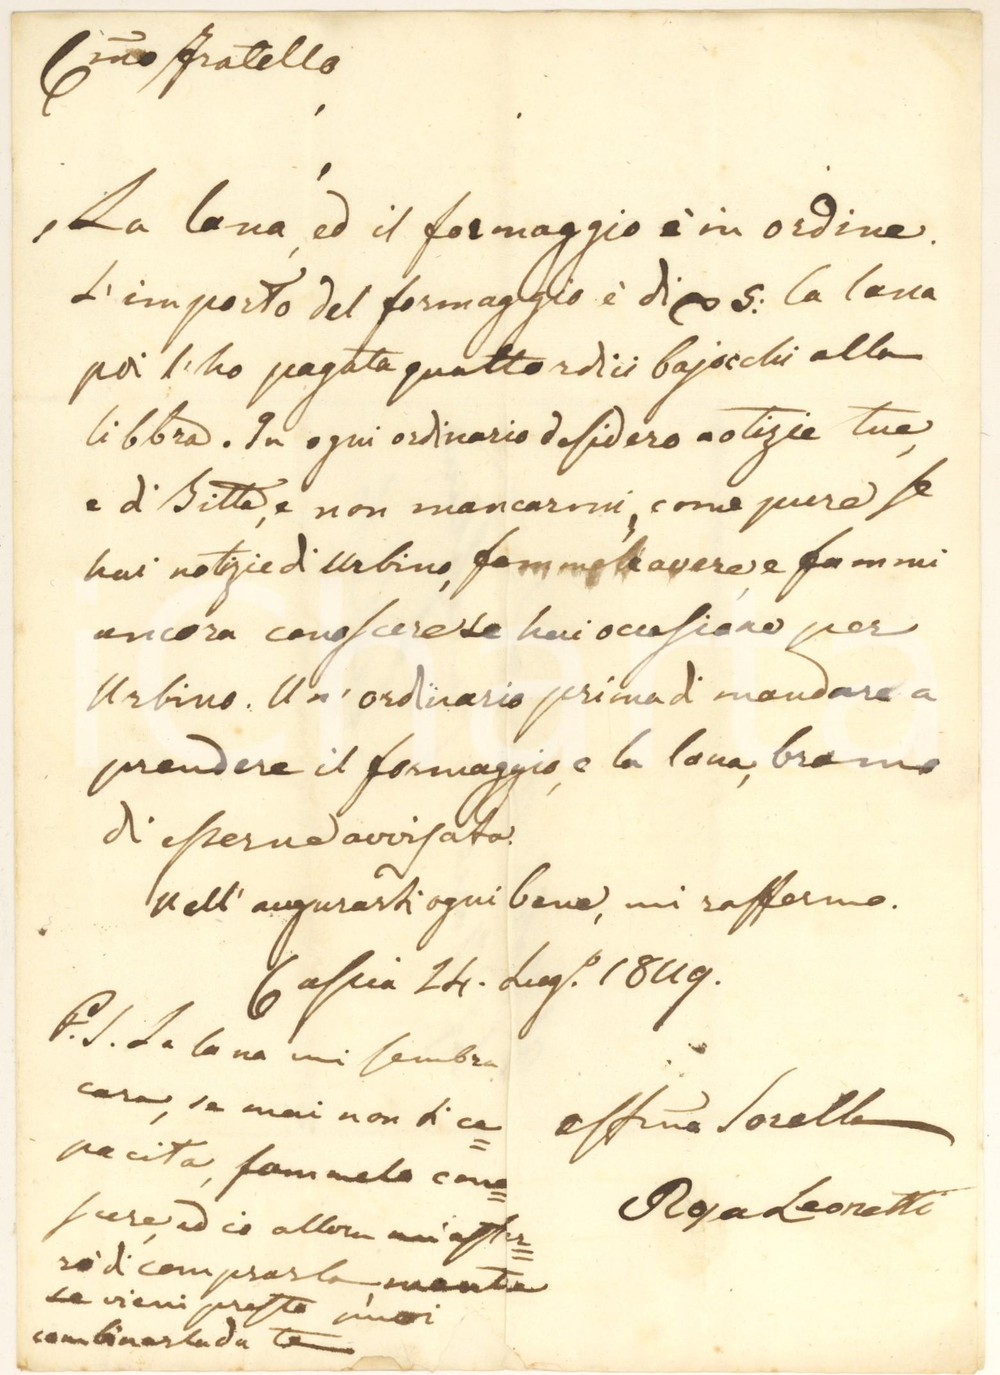 Cmo fratello
La lana, ed il formaggio è in ordine.
L'importo del formaggio è di 5: la lana
poi l'ho pagata quattordici bajocchi alla
libbra. In ogni ordinario desidero notizie tue,
e di Gitta, e non mancarmi, come pure se
hai notizie di Urbino, fammele avere, e fammi
ancora conoscere se hai occasione per
Urbino. Un'ordinario prima di mandare a
prendere il formaggio, e la lana, bramo
di esserne avvisata.
Nell'augurarti ogni bene, mi raffermo.
24. Lugo. 1849.
P.S. La lana mi sembra
cara, se mai non ti ca=
pacita, fammelo cono=
scere, ed io allora
rò di comprarla
se vieni presto puoi
combinarla da te
affma Sorella
Rosa Leonetti